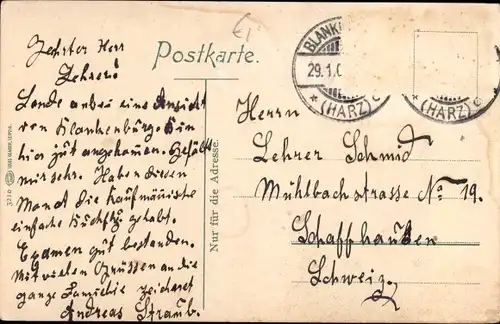 Postkarte.
BLANK
29.1.0
* (HARZ) c
* (HARZ) c
Zehrter Herr
Lehrer!
Sende anbei eine Ansicht
von Blankenburg. Bin
hier gut angekomen. Gefällt
mir sehr. Haben diesen
Monat die Kaufmänische
einfache Buchf. gehabt.
Examen gut bestanden.
Mit vielen Grüssen an die
ganze Familie zeichnet
Andreas Straub.
Nur für die Adresse.
3210
Herrn
Lehrer Schmid
Mühlbachstrasse No 19.
Schaffhausen
Schweiz.